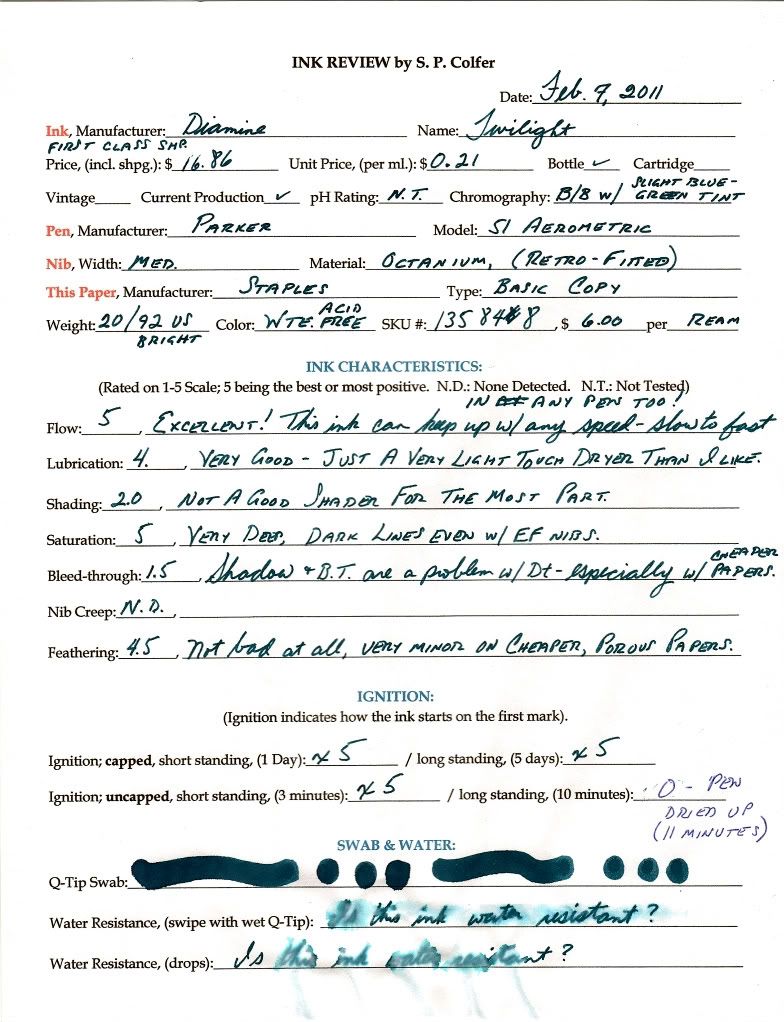 INK REVIEW by S. P. Colfer
Date: Feb. 9, 2011
Ink, Manufacturer: Diamine Name: Twilight
FIRST CLASS SHP.
Price, (incl. shpg.): $ 16.86 Unit Price, (per ml.): $ 0.21 Bottle ✓ Cartridge
Vintage Current Production ✓ pH Rating: N.T. Chromography: B/B w/ SLIGHT BLUE-GREEN TINT
Pen, Manufacturer: PARKER Model: 51 AEROMETRIC
Nib, Width: MED. Material: OCTANIUM, (RETRO-FITTED)
This Paper, Manufacturer: STAPLES Type: BASIC COPY
Weight: 20/92 US BRIGHT Color: WTE. ACID FREE SKU #: 135848 , $ 6.00 per REAM
INK CHARACTERISTICS:
(Rated on 1-5 Scale; 5 being the best or most positive. N.D.: None Detected. N.T.: Not Tested)
IN ANY PEN TOO!
Flow: 5 , EXCELLENT! This ink can keep up w/ any speed - slow to fast
Lubrication: 4. , VERY GOOD - JUST A VERY LIGHT TOUCH DRYER THAN I LIKE.
Shading: 2.0 , NOT A GOOD SHADER FOR THE MOST PART.
Saturation: 5 , VERY DEEP, DARK LINES EVEN W/ EF NIBS.
Bleed-through: 1.5 , Shadow + B.T. are a problem w/ Dt - especially w/ CHEAPER PAPERS.
Nib Creep: N.D. ,
Feathering: 4.5 , Not bad at all, VERY MINOR ON CHEAPER, POROUS PAPERS.
IGNITION:
(Ignition indicates how the ink starts on the first mark).
Ignition; capped, short standing, (1 Day): x 5 / long standing, (5 days): x 5
Ignition; uncapped, short standing, (3 minutes): x 5 / long standing, (10 minutes): O - PEN
DRIED UP
(11 MINUTES)
SWAB & WATER:
Q-Tip Swab:
Water Resistance, (swipe with wet Q-Tip): Is this ink water resistant?
Water Resistance, (drops): Is this ink water resistant?